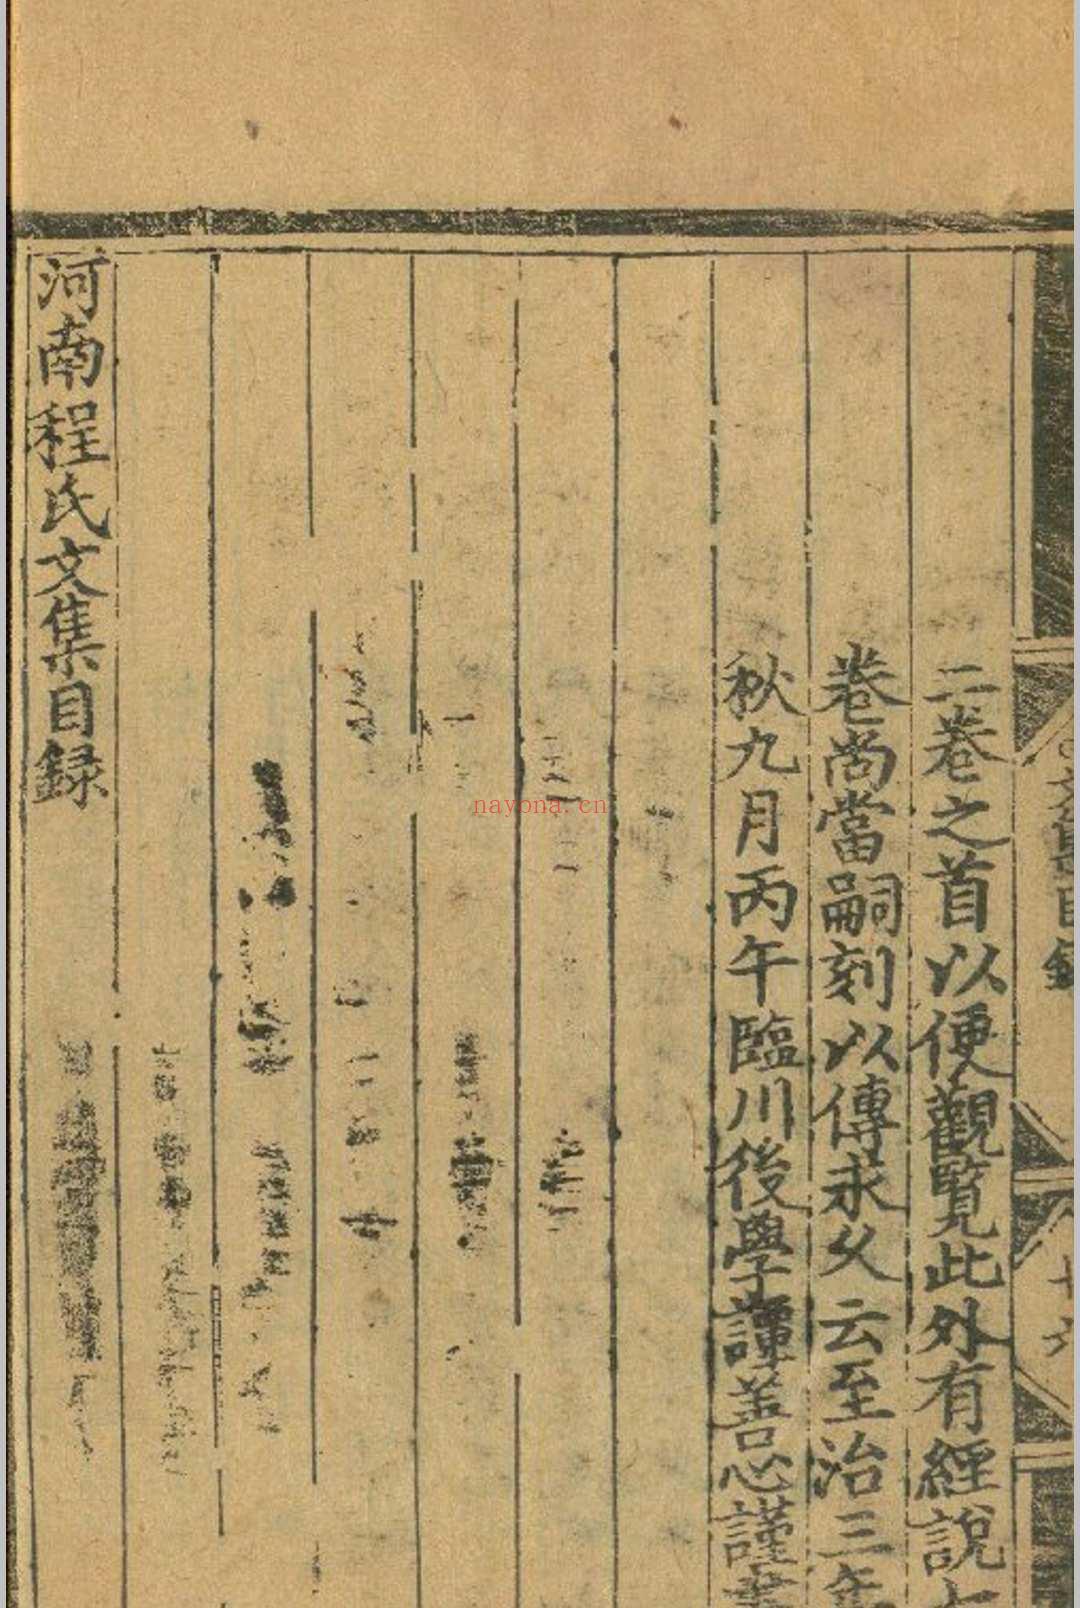 二卷之首以便觀覽此外有經說七
卷尚當嗣刻以傳永久云至治三年
秋九月丙午臨川後學譚善心謹書
河南程氏文集目録
nayona.cn